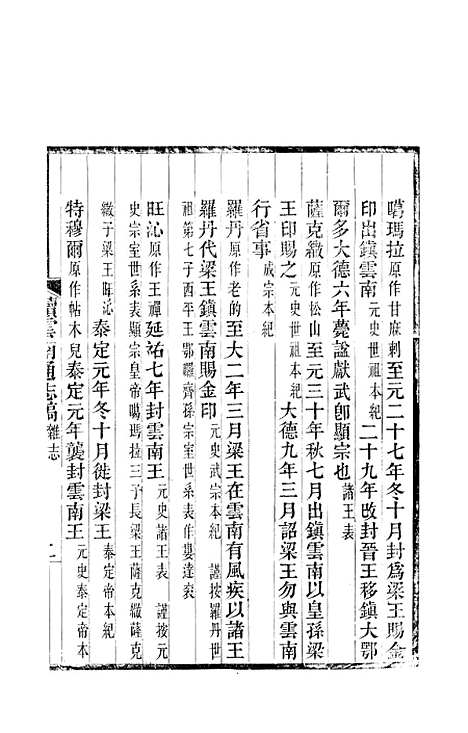 噶瑪拉原作甘麻剌至元二十七年冬十月封爲梁王賜金
印出鎮雲南元史世祖本紀二十九年改封晉王移鎮大鄂
爾多大德六年薨諡獻武卽顯宗也諸王表
薩克繖原作松山至元三十年秋七月出鎮雲南以皇孫梁
王印賜之元史世祖本紀大德九年三月詔梁王勿與雲南
行省事成宗本紀
羅丹原作老的至大二年三月梁王在雲南有風疾以諸王
羅丹代梁王鎮雲南賜金印元史武宗本紀 謹按羅丹世
祖第七子西平王鄂羅齊孫宗室世系表作婁達袞
旺沁原作王禪延祐七年封雲南王元史諸王表 謹按元
史宗室世系表顯宗皇帝噶瑪拉三子長梁王薩克繖薩克
繖子梁王旺沁泰定元年冬十月徙封梁王泰定帝本紀
特穆爾原作帖木兒泰定元年襲封雲南王元史泰定帝本
續雲南通志稿 雜志